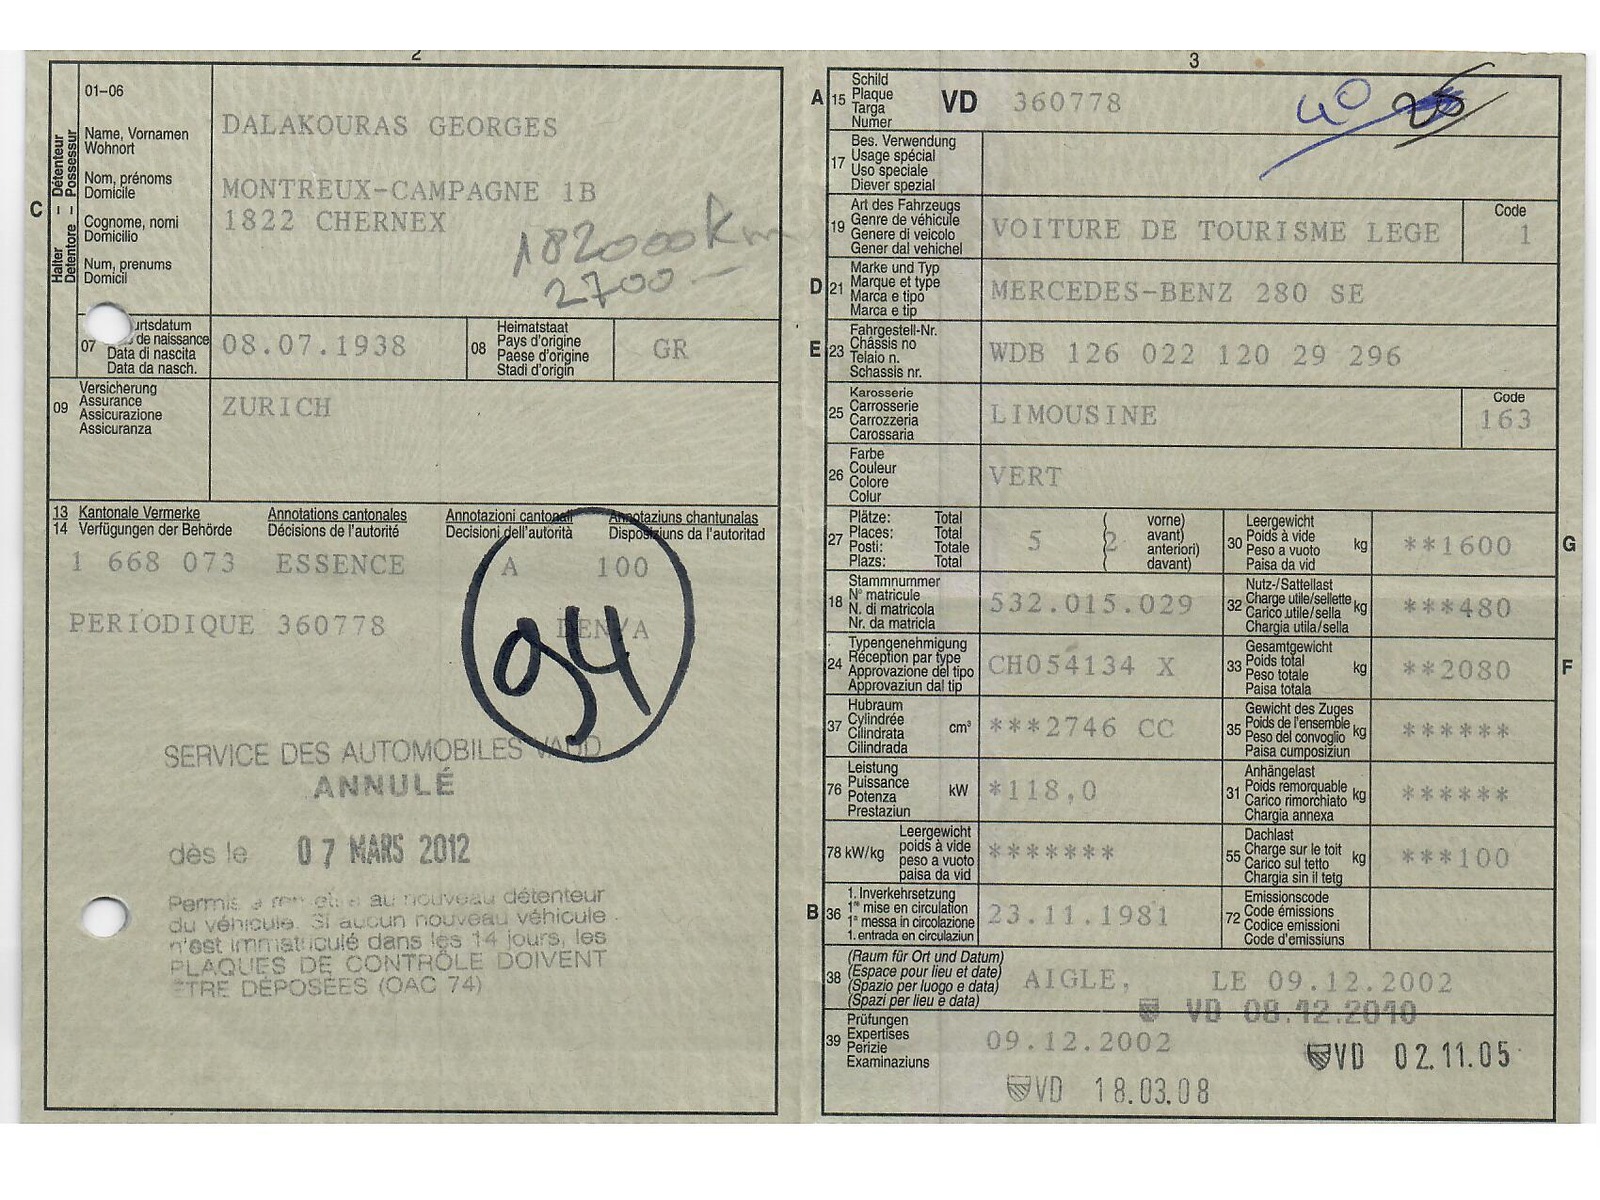 2
01–06
C
Halter – Détenteur
Detentore – Possessur
Name, Vornamen
Wohnort
Nom, prénoms
Domicile
Cognome, nomi
Domicilio
Num, prenums
Domicil
DALAKOURAS GEORGES
MONTREUX-CAMPAGNE 1B
1822 CHERNEX
182000 km
2700.—
07
urtsdatum
de naissance
Data di nascita
Data da nasch.
08.07.1938
08
Heimatstaat
Pays d'origine
Paese d'origine
Stadi d'origin
GR
09
Versicherung
Assurance
Assicurazione
Assicuranza
ZURICH
13 Kantonale Vermerke Annotations cantonales Annotazioni cantonali Annotaziuns chantunalas
14 Verfügungen der Behörde Décisions de l'autorité Decisioni dell'autorità Disposiziuns da l'autoritad
1 668 073 ESSENCE A 100
PERIODIQUE 360778 DEN/A
94
SERVICE DES AUTOMOBILES VAUD
ANNULÉ
dès le 07 MARS 2012
Permis à remettre au nouveau détenteur
du véhicule. Si aucun nouveau véhicule
n'est immatriculé dans les 14 jours, les
PLAQUES DE CONTRÔLE DOIVENT
ÊTRE DÉPOSÉES (OAC 74)
3
A 15
Schild
Plaque
Targa
Numer
VD 360778
40
17
Bes. Verwendung
Usage spécial
Uso speciale
Diever spezial
19
Art des Fahrzeugs
Genre de véhicule
Genere di veicolo
Gener dal vehichel
VOITURE DE TOURISME LEGE
Code
1
D 21
Marke und Typ
Marque et type
Marca e tipo
Marca e tip
MERCEDES-BENZ 280 SE
E 23
Fahrgestell-Nr.
Châssis no
Telaio n.
Schassis nr.
WDB 126 022 120 29 296
25
Karosserie
Carrosserie
Carrozzeria
Carossaria
LIMOUSINE
Code
163
26
Farbe
Couleur
Colore
Colur
VERT
27
Plätze: Total
Places: Total
Posti: Totale
Plazs: Total
5 2
vorne)
avant)
anteriori)
davant)
30
Leergewicht
Poids à vide
Peso a vuoto
Paisa da vid
kg
**1600
G
18
Stammnummer
N° matricule
N. di matricola
Nr. da matricla
532.015.029
32
Nutz-/Sattellast
Charge utile/sellette
Carico utile/sella
Chargia utila/sella
kg
***480
24
Typengenehmigung
Réception par type
Approvazione del tipo
Approvaziun dal tip
CH054134 X
33
Gesamtgewicht
Poids total
Peso totale
Paisa totala
kg
**2080
F
37
Hubraum
Cylindrée
Cilindrata
Cilindrada
cm³
***2746 CC
35
Gewicht des Zuges
Poids de l'ensemble
Peso del convoglio
Paisa cumposiziun
kg
******
76
Leistung
Puissance
Potenza
Prestaziun
kW
*118,0
31
Anhängelast
Poids remorquable
Carico rimorchiato
Chargia annexa
kg
******
78 kW/kg
Leergewicht
poids à vide
peso a vuoto
paisa da vid
*******
55
Dachlast
Charge sur le toit
Carico sul tetto
Chargia sin il tetg
kg
***100
B 36
1. Inverkehrsetzung
1re mise en circulation
1a messa in circolazione
1. entrada en circulaziun
23.11.1981
72
Emissionscode
Code émissions
Codice emissioni
Code d'emissiuns
38
(Raum für Ort und Datum)
(Espace pour lieu et date)
(Spazio per luogo e data)
(Spazi per lieu e data)
AIGLE, LE 09.12.2002
VD 08.12.2010
39
Prüfungen
Expertises
Perizie
Examinaziuns
09.12.2002
VD 02.11.05
VD 18.03.08